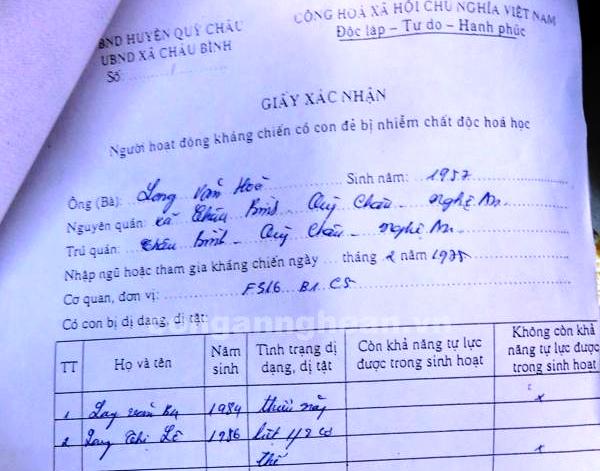 BND HUYỆN QUỲ CHÂU
UBND XÃ CHÂU BÌNH
Số: /
CỘNG HOÀ XÃ HỘI CHỦ NGHĨA VIỆT NAM
Độc lập - Tự do - Hạnh phúc
GIẤY XÁC NHẬN
Người hoạt động kháng chiến có con đẻ bị nhiễm chất độc hoá học
Ông (Bà): Văn Hoà Sinh năm: 1957
Nguyên quán: xã Châu Bình - Quỳ Châu - Nghệ An
Trú quán: Châu Bình - Quỳ Châu - Nghệ An
Nhập ngũ hoặc tham gia kháng chiến ngày ... tháng 2 năm 1975
Cơ quan, đơn vị: F516 B1 C5
Có con bị dị dạng, dị tật:
congannghean.vn
TT Họ và tên Năm sinh Tình trạng dị dạng, dị tật Còn khả năng tự lực được trong sinh hoạt Không còn khả năng tự lực được trong sinh hoạt
1 văn 1984 thiểu năng x
2 Thị Lê 1986 liệt 1/2 cơ thể x